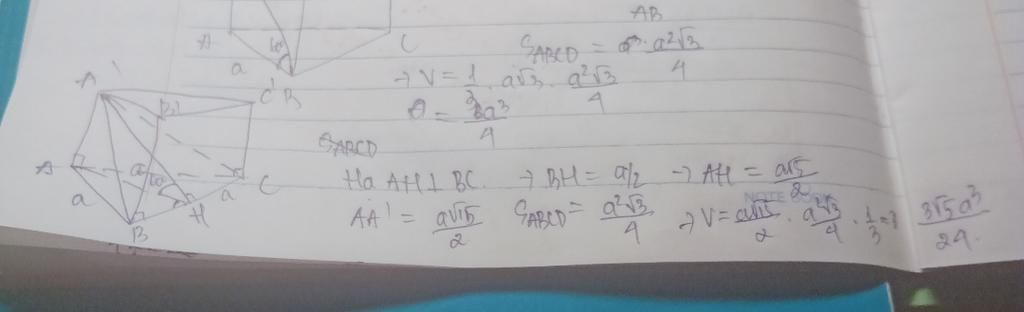 AB
A
60°
C
a
S_ABCD = a³ · a²√3 / 4
→ V = 1/3 · a√3 · a²√3 / 4
= 3a³ / 4
A'
B'
C'
B
S_ABCD
A
a
60°
a
C
a
H
B
Hạ AH ⊥ BC → BH = a/2 → AH = a√5 / 2
NOTE BOOK
AA' = a√15 / 2 S_ABCD = a²√3 / 4 → V = a√15 / 2 · a²√3 / 4 · 1/3 = 3√5a³ / 24.